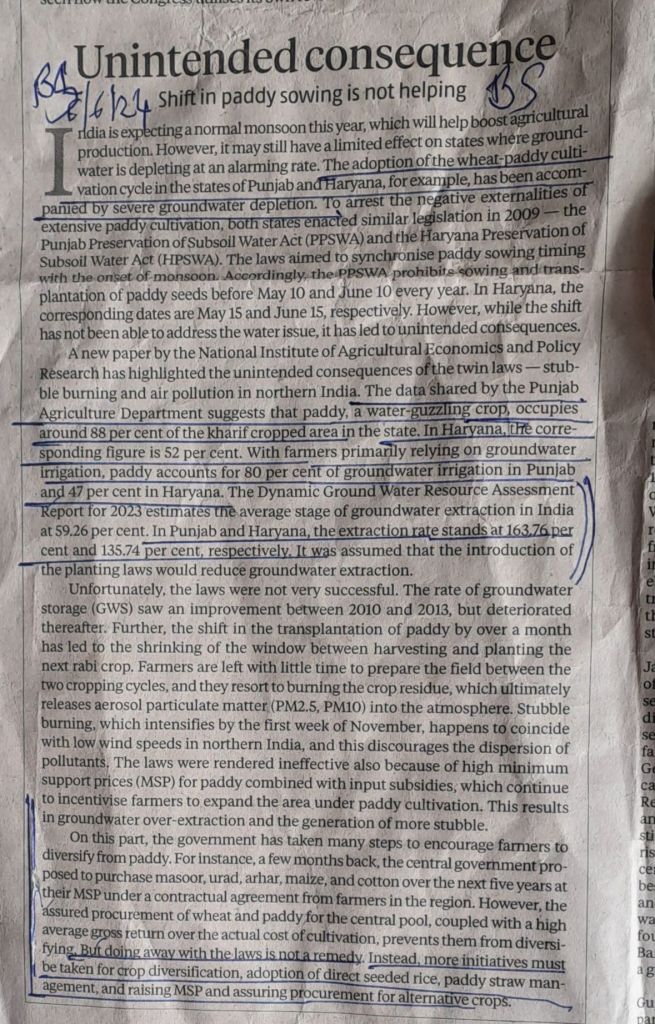 Unintended consequence
BS
6/6/24
Shift in paddy sowing is not helping
BS
India is expecting a normal monsoon this year, which will help boost agricultural
production. However, it may still have a limited effect on states where ground-
water is depleting at an alarming rate. The adoption of the wheat-paddy culti-
vation cycle in the states of Punjab and Haryana, for example, has been accom-
panied by severe groundwater depletion. To arrest the negative externalities of
extensive paddy cultivation, both states enacted similar legislation in 2009 — the
Punjab Preservation of Subsoil Water Act (PPSWA) and the Haryana Preservation of
Subsoil Water Act (HPSWA). The laws aimed to synchronise paddy sowing timing
with the onset of monsoon. Accordingly, the PPSWA prohibits sowing and trans-
plantation of paddy seeds before May 10 and June 10 every year. In Haryana, the
corresponding dates are May 15 and June 15, respectively. However, while the shift
has not been able to address the water issue, it has led to unintended consequences.
A new paper by the National Institute of Agricultural Economics and Policy
Research has highlighted the unintended consequences of the twin laws — stub-
ble burning and air pollution in northern India. The data shared by the Punjab
Agriculture Department suggests that paddy, a water-guzzling crop, occupies
around 88 per cent of the kharif cropped area in the state. In Haryana, the corre-
sponding figure is 52 per cent. With farmers primarily relying on groundwater
irrigation, paddy accounts for 80 per cent of groundwater irrigation in Punjab
and 47 per cent in Haryana. The Dynamic Ground Water Resource Assessment
Report for 2023 estimates the average stage of groundwater extraction in India
at 59.26 per cent. In Punjab and Haryana, the extraction rate stands at 163.76 per
cent and 135.74 per cent, respectively. It was assumed that the introduction of
the planting laws would reduce groundwater extraction.
Unfortunately, the laws were not very successful. The rate of groundwater
storage (GWS) saw an improvement between 2010 and 2013, but deteriorated
thereafter. Further, the shift in the transplantation of paddy by over a month
has led to the shrinking of the window between harvesting and planting the
next rabi crop. Farmers are left with little time to prepare the field between the
two cropping cycles, and they resort to burning the crop residue, which ultimately
releases aerosol particulate matter (PM2.5, PM10) into the atmosphere. Stubble
burning, which intensifies by the first week of November, happens to coincide
with low wind speeds in northern India, and this discourages the dispersion of
pollutants. The laws were rendered ineffective also because of high minimum
support prices (MSP) for paddy combined with input subsidies, which continue
to incentivise farmers to expand the area under paddy cultivation. This results
in groundwater over-extraction and the generation of more stubble.
On this part, the government has taken many steps to encourage farmers to
diversify from paddy. For instance, a few months back, the central government pro-
posed to purchase masoor, urad, arhar, maize, and cotton over the next five years at
their MSP under a contractual agreement from farmers in the region. However, the
assured procurement of wheat and paddy for the central pool, coupled with a high
average gross return over the actual cost of cultivation, prevents them from diversi-
fying. But doing away with the laws is not a remedy. Instead, more initiatives must
be taken for crop diversification, adoption of direct seeded rice, paddy straw man-
agement, and raising MSP and assuring procurement for alternative crops.